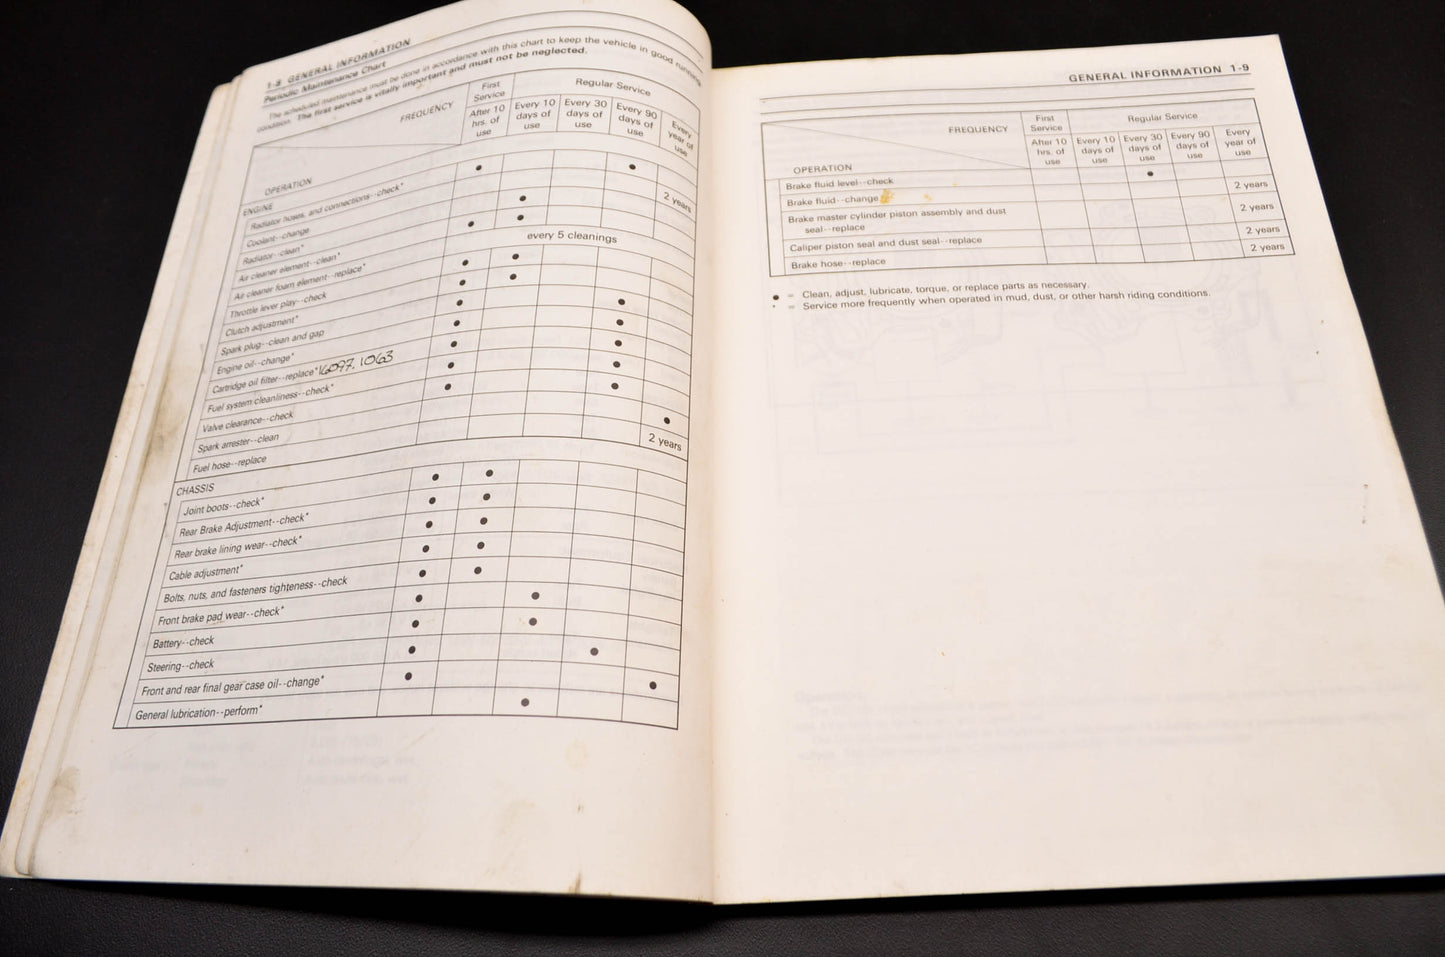 1-8 GENERAL INFORMATION
Periodic Maintenance Chart
The scheduled maintenance must be done in accordance with this chart to keep the vehicle in good running
condition. The first service is vitally important and must not be neglected.
FREQUENCY
First Service
Regular Service
After 10 hrs. of use
Every 10 days of use
Every 30 days of use
Every 90 days of use
Every year of use
OPERATION
ENGINE
Radiator hoses, and connections--check*
Coolant--change
2 years
Radiator--clean*
Air cleaner element--clean*
Air cleaner foam element--replace*
every 5 cleanings
Throttle lever play--check
Clutch adjustment*
Spark plug--clean and gap
Engine oil--change*
Cartridge oil filter--replace* 16097. 1063
Fuel system cleanliness--check*
Valve clearance--check
Spark arrester--clean
Fuel hose--replace
2 years
CHASSIS
Joint boots--check*
Rear Brake Adjustment--check*
Rear brake lining wear--check*
Cable adjustment*
Bolts, nuts, and fasteners tighteness--check
Front brake pad wear--check*
Battery--check
Steering--check
Front and rear final gear case oil--change*
General lubrication--perform*
GENERAL INFORMATION 1-9
FREQUENCY
First Service
Regular Service
After 10 hrs. of use
Every 10 days of use
Every 30 days of use
Every 90 days of use
Every year of use
OPERATION
Brake fluid level--check
Brake fluid--change
2 years
Brake master cylinder piston assembly and dust
seal--replace
2 years
Caliper piston seal and dust seal--replace
2 years
Brake hose--replace
2 years
● = Clean, adjust, lubricate, torque, or replace parts as necessary.
* = Service more frequently when operated in mud, dust, or other harsh riding conditions.